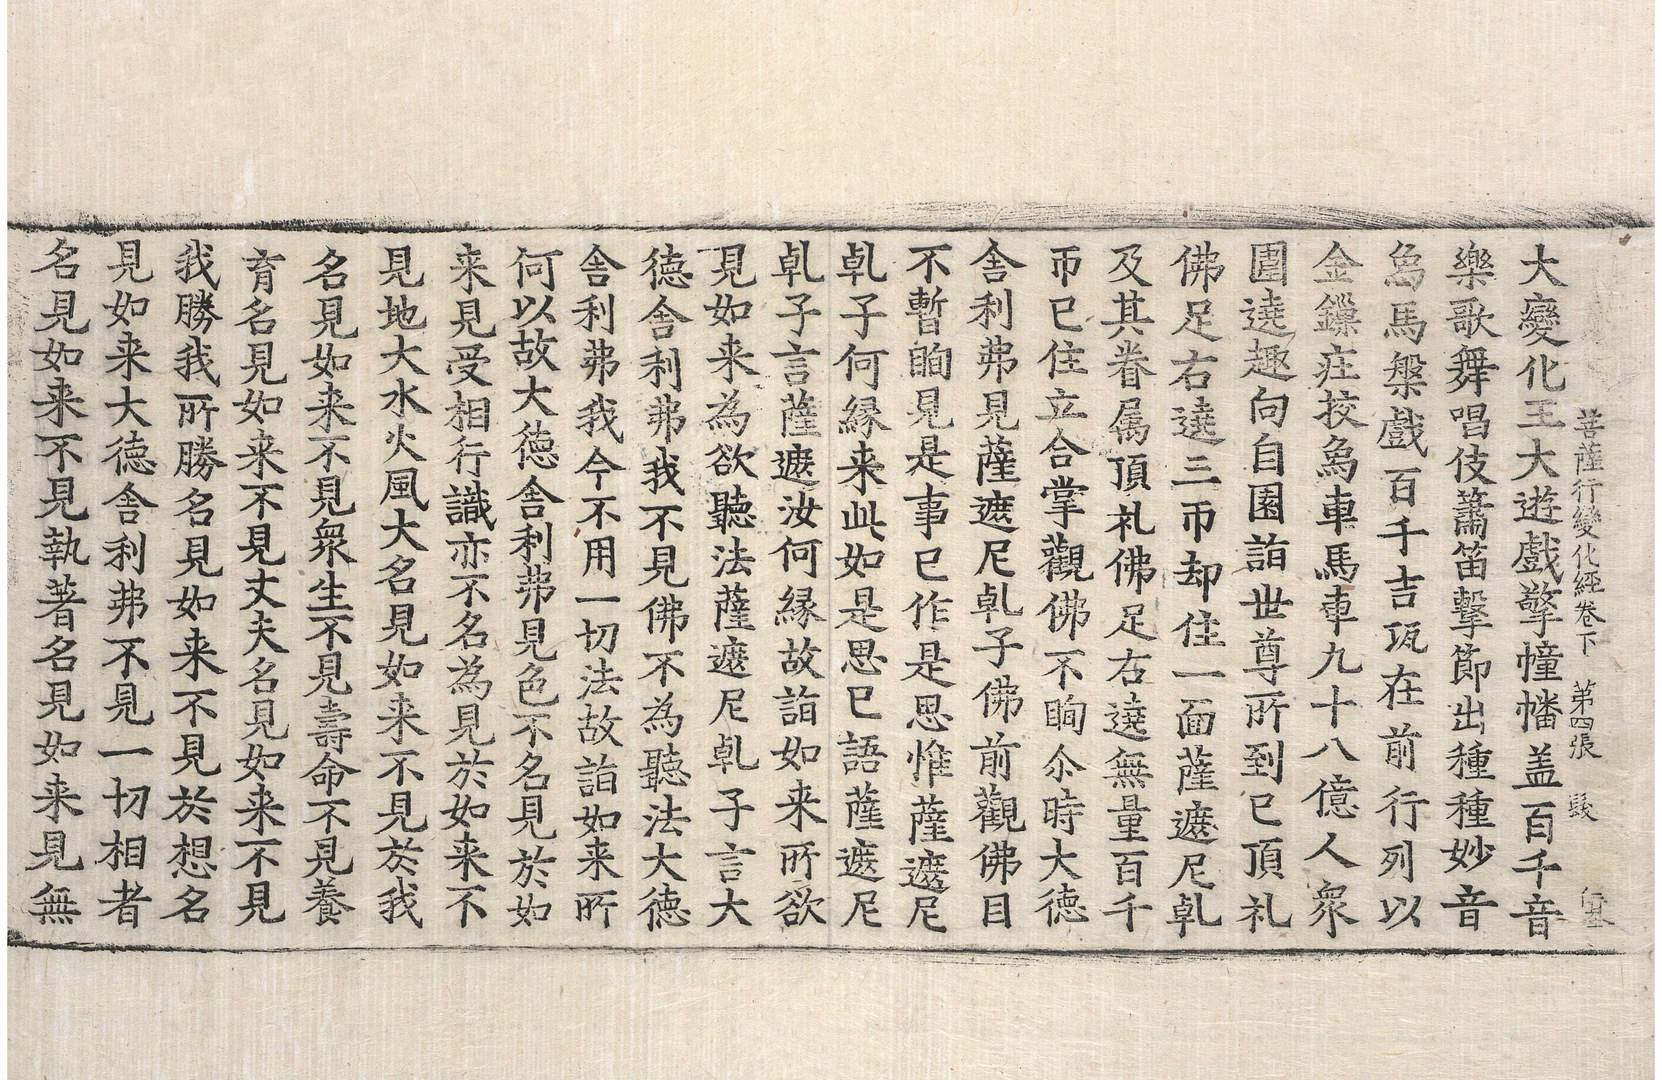 菩薩行變化經卷下 第四張 髮
大變化王大遊戲擎幢幡盖百千音
樂歌舞唱伎簫笛擊節出種種妙音
烏馬槃戲百千吉瓨在前行列以
金鏁庄挍烏車馬車九十八億人衆
圍遶趣向自園詣世尊所到已頂礼
佛足右遶三帀却住一面薩遮尼乹
及其眷属頂礼佛足右遶無量百千
帀已住立合掌觀佛不眴尒時大德
舎利弗見薩遮尼乹子佛前觀佛目
不暫眴見是事已作是思惟薩遮尼
乹子何縁来此如是思已語薩遮尼
乹子言薩遮汝何縁故詣如来所欲
見如来為欲聽法薩遮尼乹子言大
德舎利弗我不見佛不為聽法大德
舎利弗我今不用一切法故詣如来所
何以故大德舎利弗見色不名見於如
来見受相行識亦不名為見於如来不
見地大水火風大名見如来不見於我
名見如来不見衆生不見壽命不見養
育名見如来不見丈夫名見如来不見
我勝我所勝名見如来不見於想名
見如来大德舎利弗不見一切相者
名見如来不見執著名見如来見無